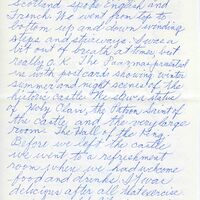 Scotland spoke English and
French. We went from top to
bottom up and down winding
steps and stairways. I was a
bit out of breath at times, but
really O.K. The Taarnas presented
me with postcards showing winter
summer and night scenes of the
historic castle. The slow statue
of Holy Clair, the Patron Saint of
the Castle and the very large
room The Hall of the King.
Before we left the castle
we went to a refreshment
room where we had welcome
food and drinks. It was
delicious after all that exercise